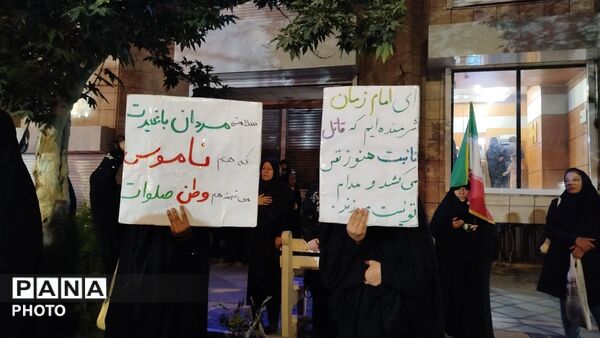 سلامتی مردان باغیرت
که هم ناموس
می‌فهمند هم وطن صلوات
ای امام زمان
شرمنده‌ایم که قاتل
نایبت هنوز نفس
می‌کشد و مدام
توئیت می‌زند!
PANA
PHOTO